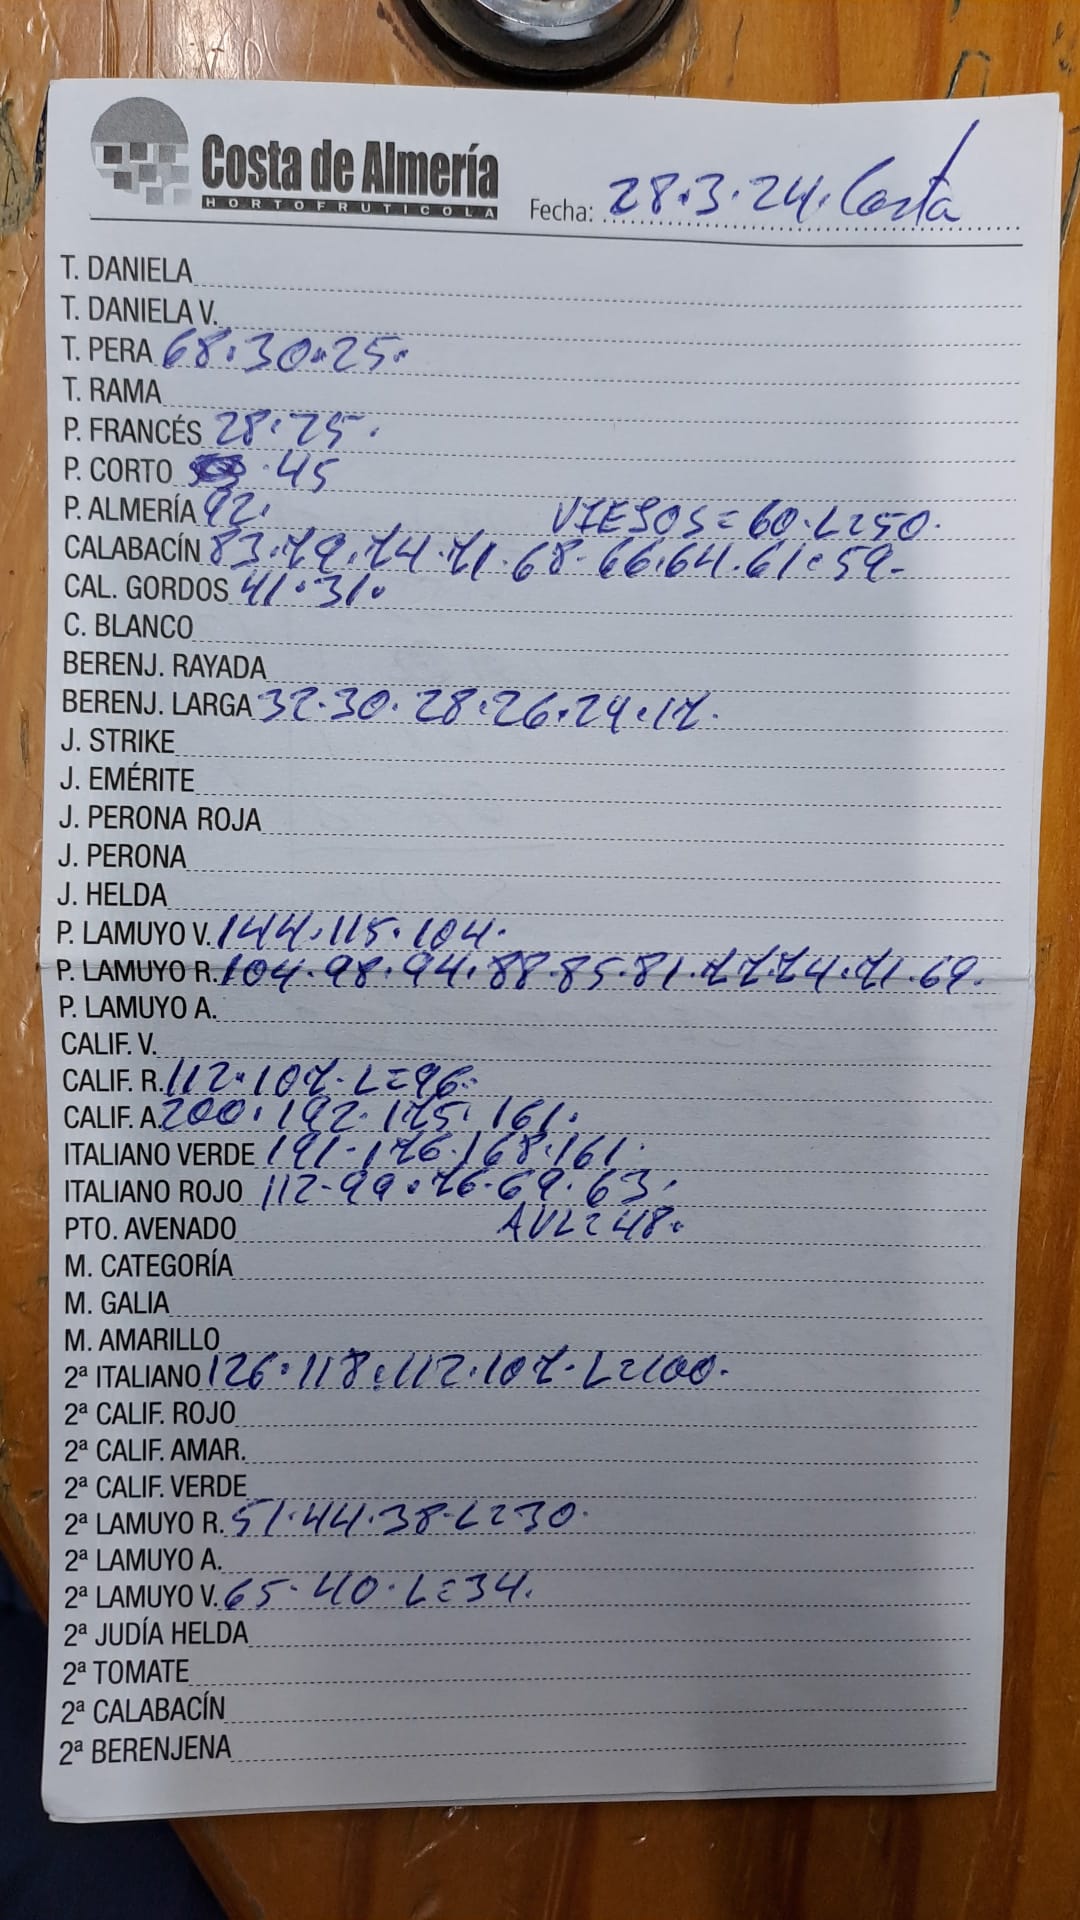 Costa de Almería
HORTOFRUTICOLA
Fecha: 28.3.24. Costa
T. DANIELA
T. DANIELA V.
T. PERA 68.30.25.
T. RAMA
P. FRANCÉS 28.25.
P. CORTO .45
P. ALMERÍA 92. VIESOS = 60.L=50.
CALABACÍN 83.79.74.71.68.66.64.61.59-
CAL. GORDOS 41.31.
C. BLANCO
BERENJ. RAYADA
BERENJ. LARGA 32.30.28.26.24.17.
J. STRIKE
J. EMÉRITE
J. PERONA ROJA
J. PERONA
J. HELDA
P. LAMUYO V. 144.115.104.
P. LAMUYO R. 104.98.94.88.85.81.77.74.71.69.
P. LAMUYO A.
CALIF. V.
CALIF. R. 112.107.L=96.
CALIF. A 200.192.175.161.
ITALIANO VERDE 191-176.168.161.
ITALIANO ROJO 112-99.76.69.63.
PTO. AVENADO AVL=48.
M. CATEGORÍA
M. GALIA
M. AMARILLO
2ª ITALIANO 126.118.112.107.L=100.
2ª CALIF. ROJO
2ª CALIF. AMAR.
2ª CALIF. VERDE
2ª LAMUYO R. 51.44.38.L=30.
2ª LAMUYO A.
2ª LAMUYO V. 65.40.L=34.
2ª JUDÍA HELDA
2ª TOMATE
2ª CALABACÍN
2ª BERENJENA